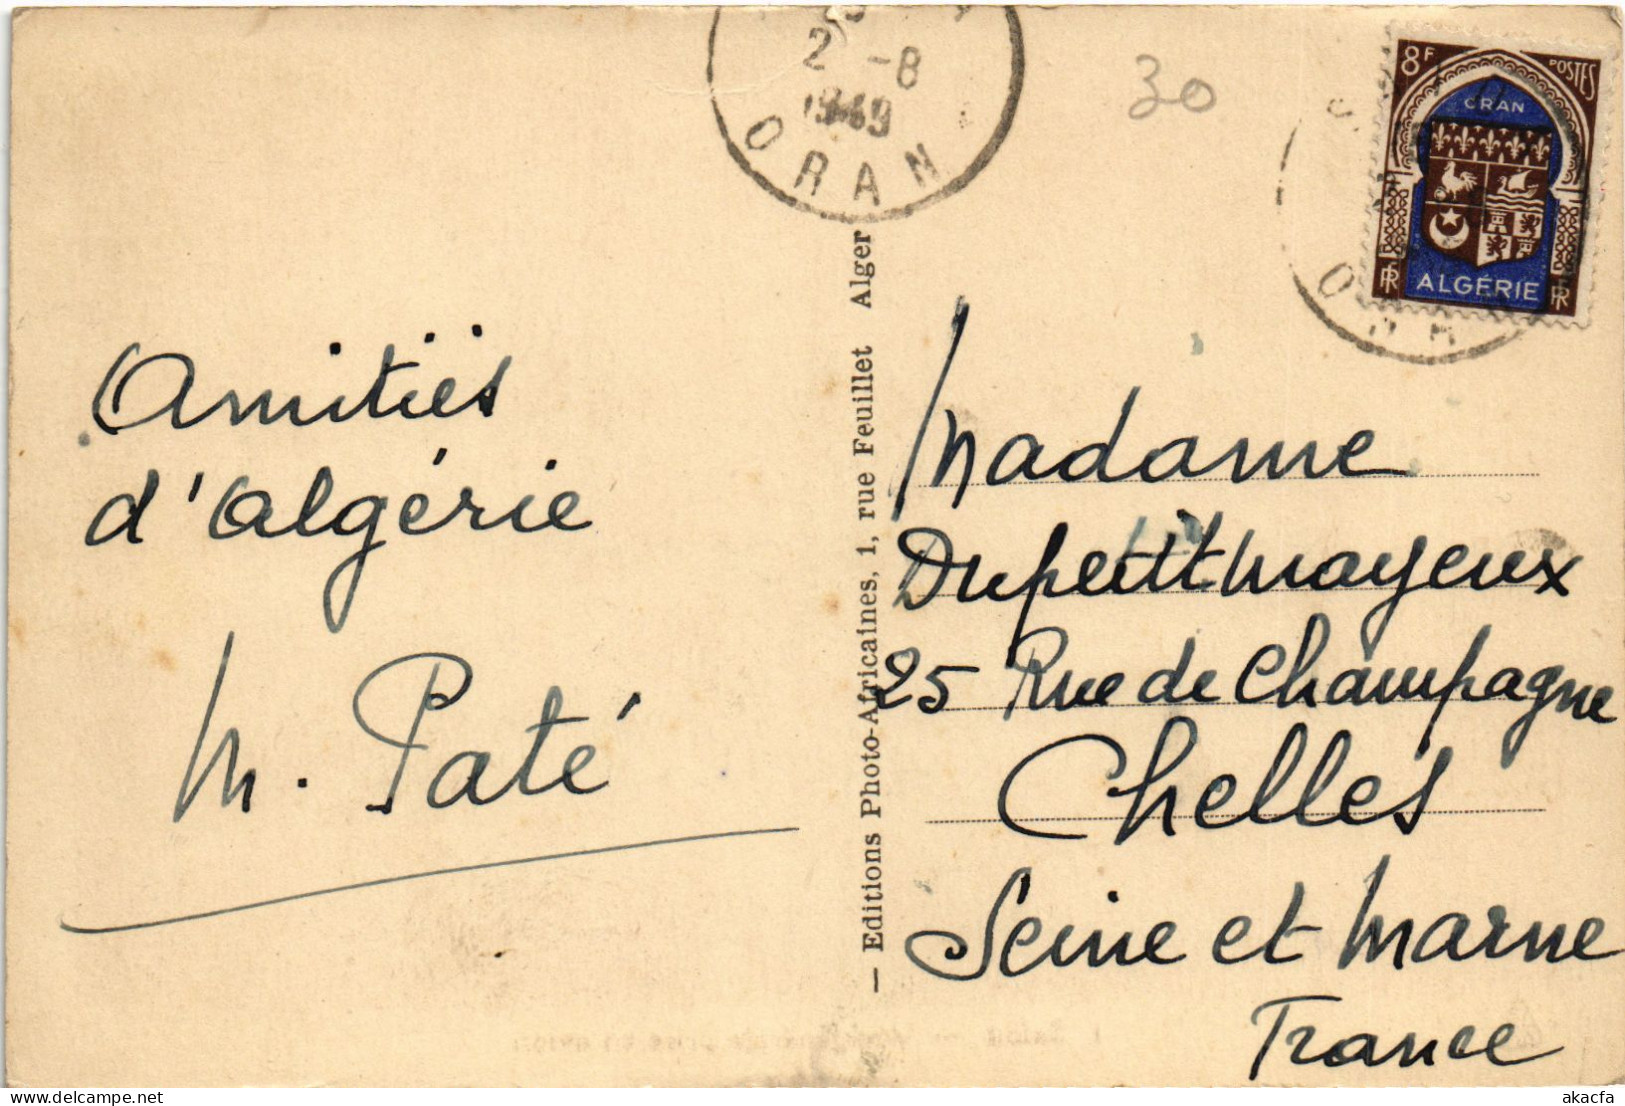 2 -8
1949
ORAN
30
8F POSTES
ORAN
RF ALGÉRIE RF
Amitiés
d'Algérie
M. Paté
— Editions Photo-Africaines, 1, rue Feuillet Alger
Madame
Dupetitmayeux
25 Rue de Champagne
Chelles
Seine et Marne
France
delcampe.net
akacfa